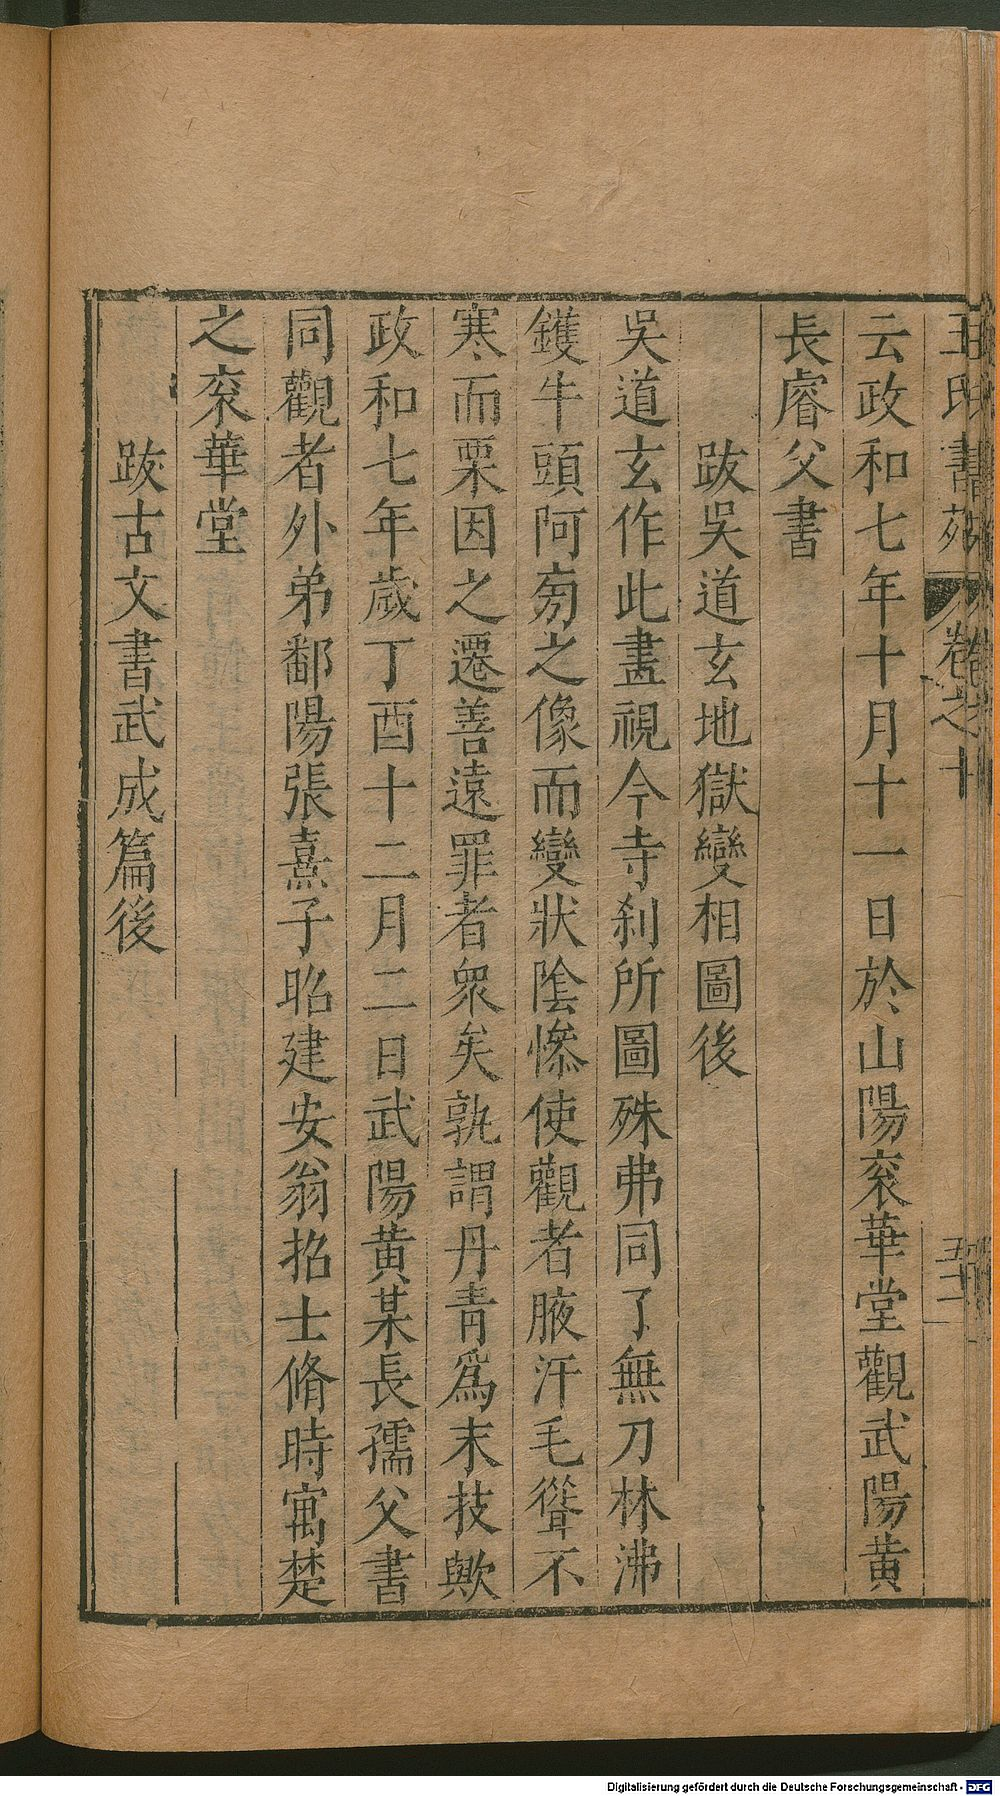 王氏書苑 卷之十 五二
云政和七年十月十一日於山陽衮華堂觀武陽黄
長睿父書
跋吳道玄地獄變相圖後
吳道玄作此畫視今寺刹所圖殊弗同了無刀林沸
鑊牛頭阿旁之像而變狀陰慘使觀者腋汗毛聳不
寒而栗因之遷善遠罪者衆矣孰謂丹青爲末技歟
政和七年歲丁酉十二月二日武陽黄某長孺父書
同觀者外弟鄱陽張熹子昭建安翁招士脩時寓楚
之衮華堂
跋古文書武成篇後
Digitalisierung gefördert durch die Deutsche Forschungsgemeinschaft - DFG